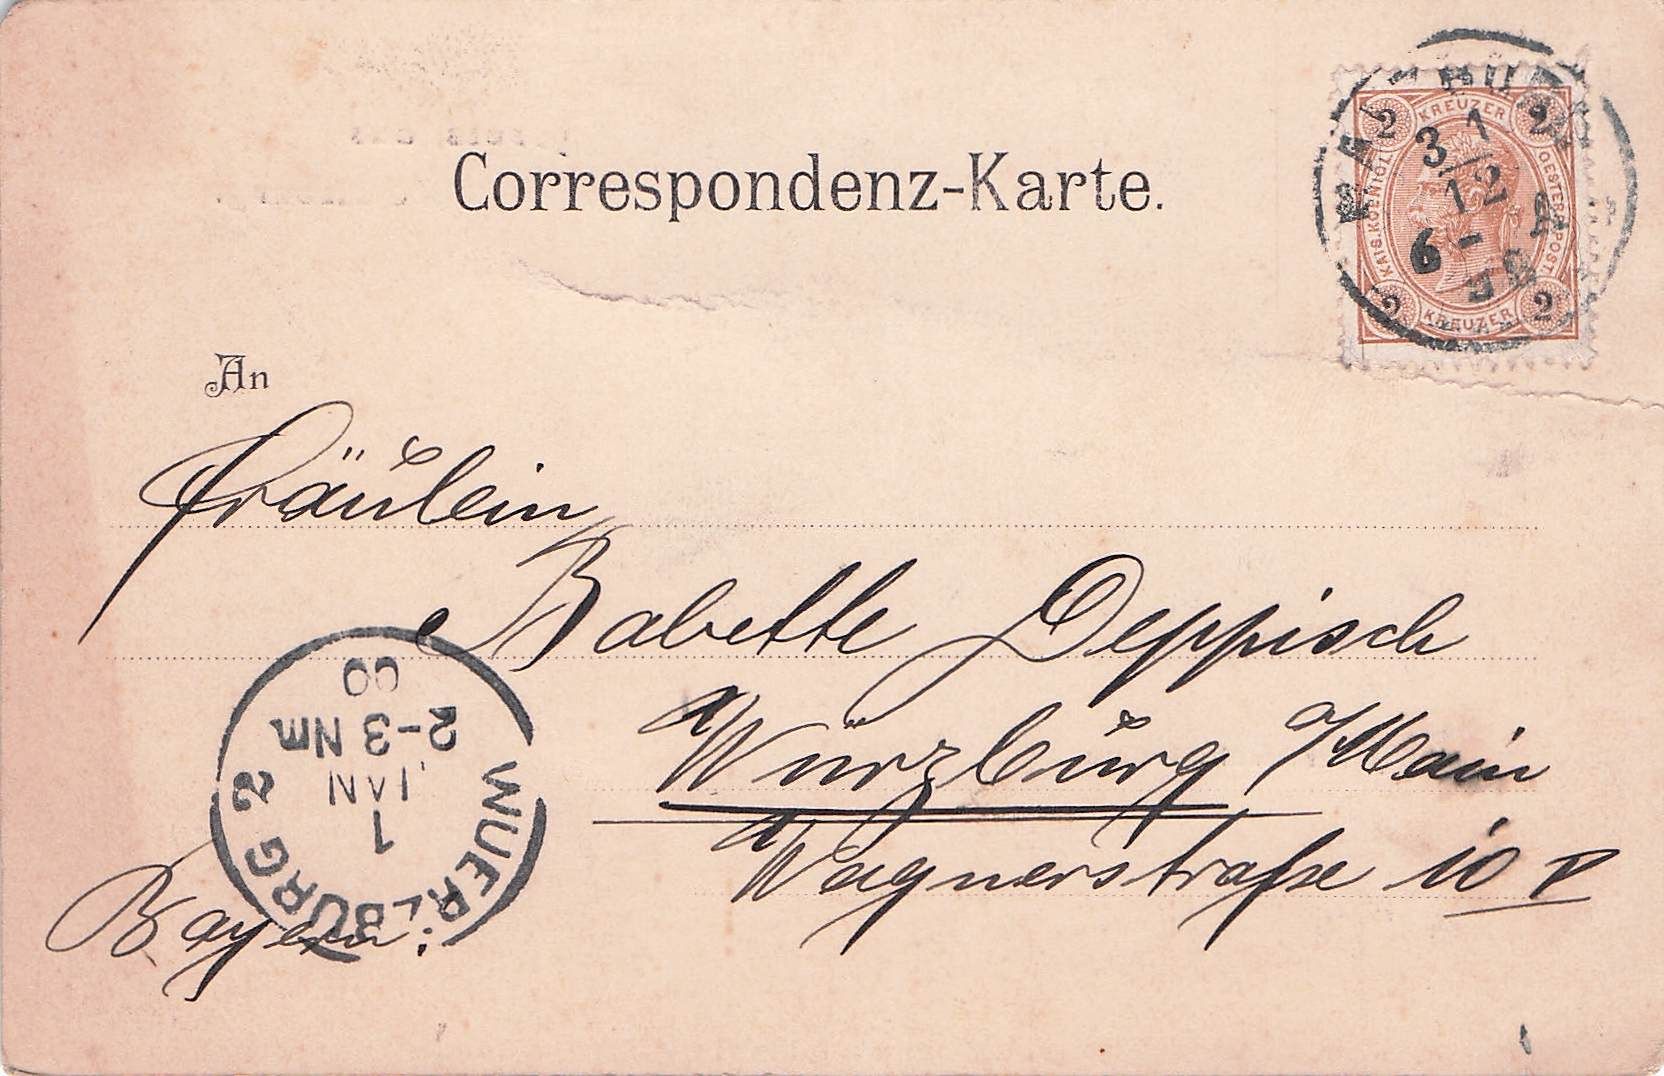 Correspondenz-Karte.
KREUZER
2 2
KAIS. KOENIGL. OESTERR. POST.
2 2
KREUZER
31
12
6 -
An
Fräulein
Babette Deppisch
Würzburg /Main
Wagnerstraße 10
Bayern.
WUERZBURG 2
1
JAN
2-3 Nm
00